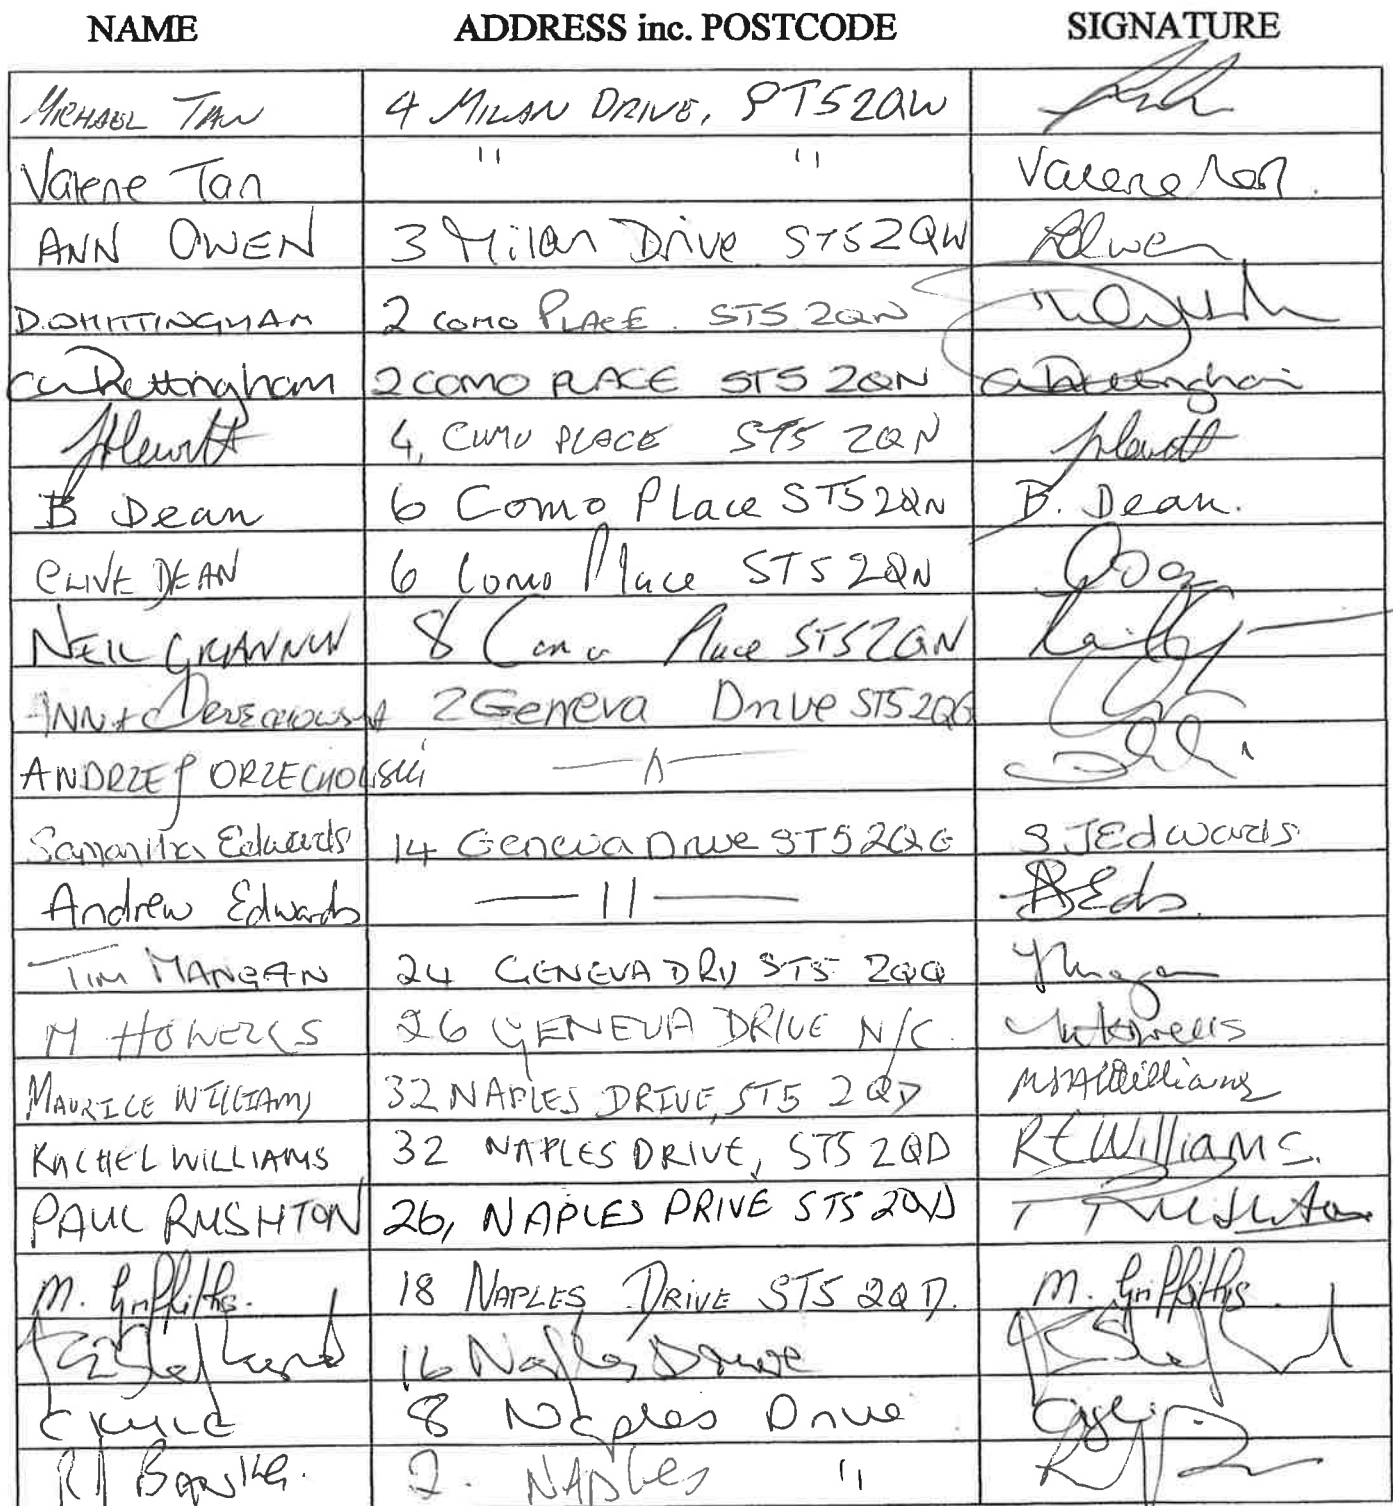 NAME ADDRESS inc. POSTCODE SIGNATURE
MICHAEL TAN 4 MILAN DRIVE, ST5 2QW
Valerie Tan " " Valerie Tan.
ANN OWEN 3 Milan Drive ST5 2QW AOwen
D.WHITTINGHAM 2 COMO PLACE. ST5 2QN
C Whittingham 2 COMO PLACE ST5 2QN C Whittingham
J Hewitt 4, COMO PLACE ST5 2QN J Hewitt
B Dean 6 Como Place ST5 2QN B. Dean.
CLIVE DEAN 6 Como Place ST5 2QN
NEIL 8 Como Place ST5 2QN
ANNA ORZECHOWSKA 2 Geneva Drive ST5 2QG
ANDRZEJ ORZECHOWSKI —"—
Samantha Edwards 14 Geneva Drive ST5 2QG S JEdwards
Andrew Edwards — 11 — AEds.
TIM MANGAN 24 GENEVA DRV ST5 2QQ
M HOWELLS 26 GENEVA DRIVE N/C. M Howells
MAURICE WILLIAMS 32 NAPLES DRIVE, ST5 2QD Williams
RACHEL WILLIAMS 32 NAPLES DRIVE, ST5 2QD R E Williams.
PAUL RUSHTON 26, NAPLES DRIVE ST5 2QD P Rushton
M. Griffiths. 18 NAPLES DRIVE ST5 2QD. M. Griffiths.
16 Naples Drive
C KYLE 8 Naples Drive
2. NAPLES "